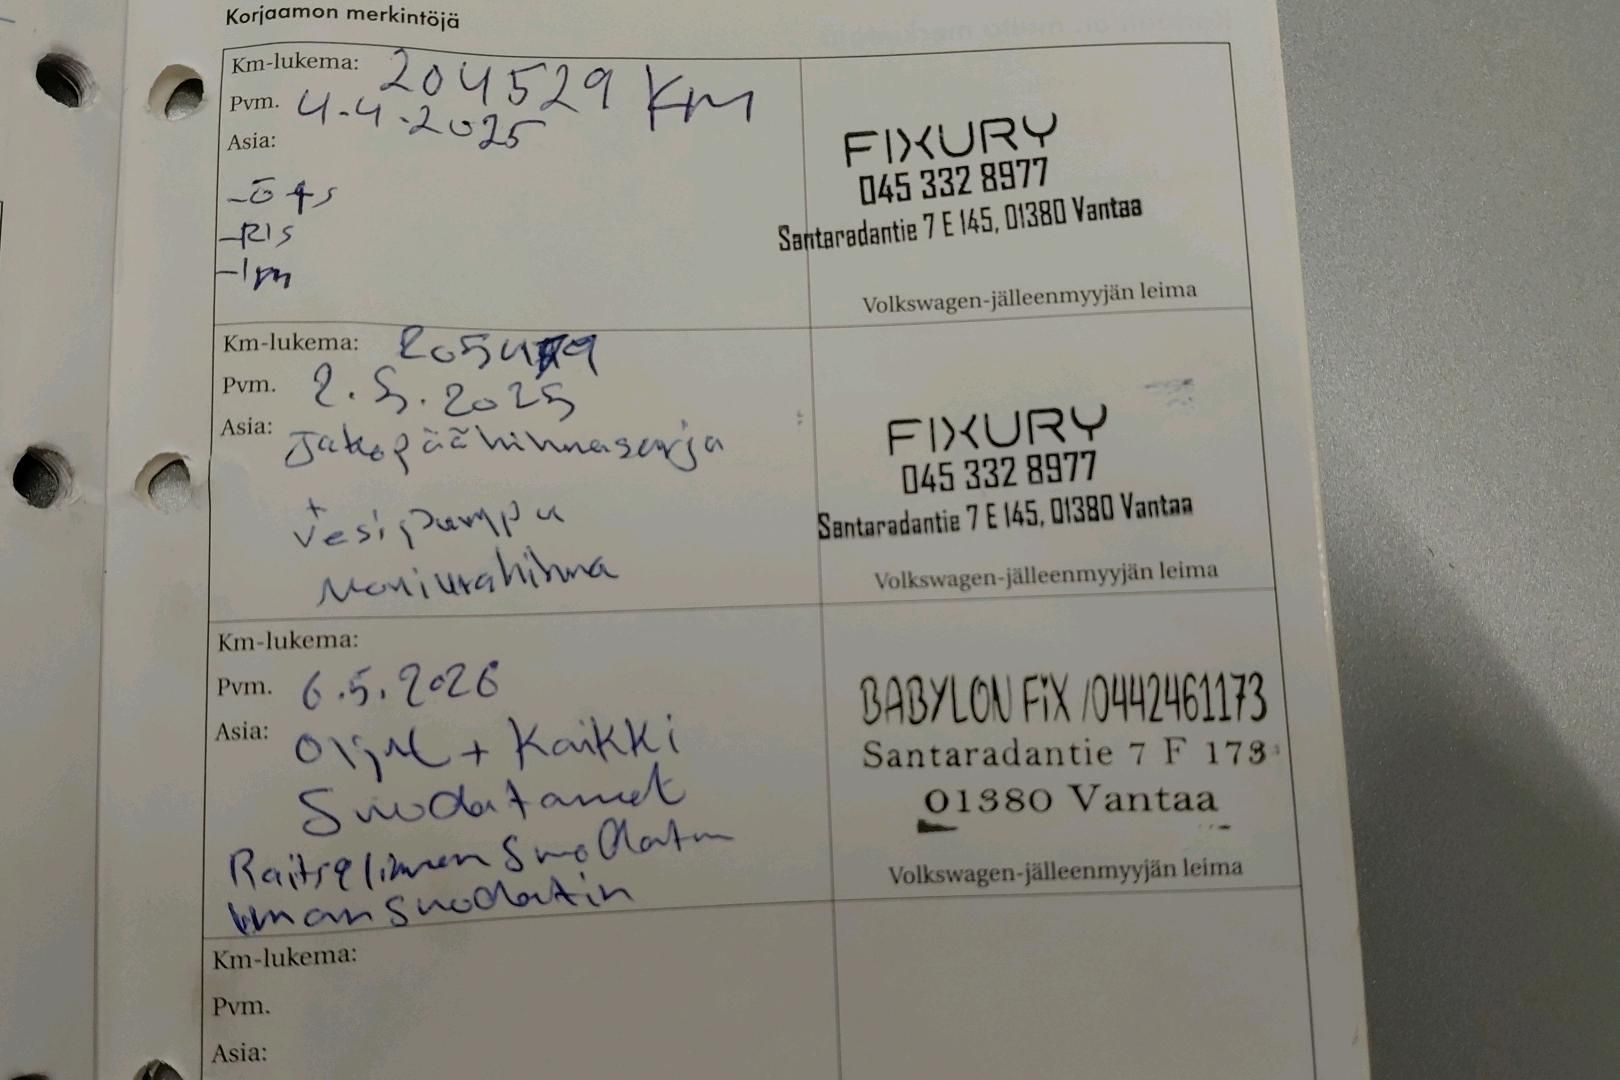 Korjaamon merkintöjä
Km-lukema: 204529 Km
Pvm. 4.4.2025
Asia:
FIXURY
045 332 8977
Santaradantie 7 E 145, 01380 Vantaa
-Ö+s
-RIS
-Im
Volkswagen-jälleenmyyjän leima
Km-lukema:
Pvm. 2.5.2025
Asia: Jakopäähihnasarja
+
Vesipumpu
Moniurahihna
FIXURY
045 332 8977
Santaradantie 7 E 145, 01380 Vantaa
Volkswagen-jälleenmyyjän leima
Km-lukema:
Pvm. 6.5.2026
Asia: + Kaikki
Suodatamet
suodatin
BABYLON FiX /0442461173
Santaradantie 7 F 173
01380 Vantaa
Volkswagen-jälleenmyyjän leima
Km-lukema:
Pvm.
Asia: